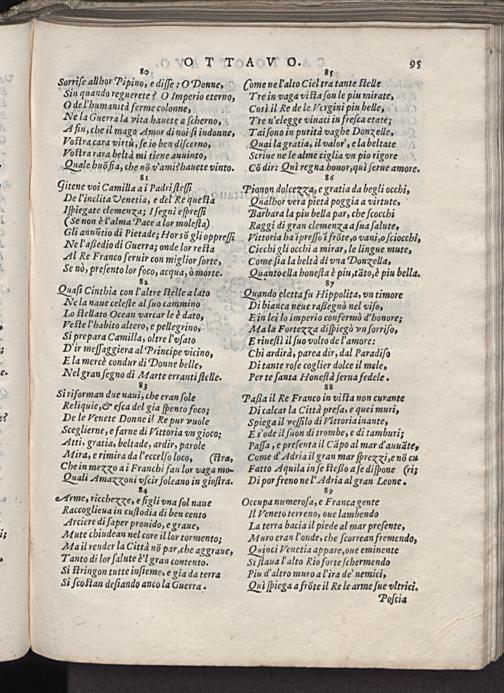 OTTAVO. 95
80
Sorrise allhor Pipino, e disse: O Donne,
Sin quando regnerete? O Imperio eterno,
O de l'humanità ferme colonne,
Ne la Guerra la vita hauete a scherno,
A fin, che il mago Amor di noi si indonne,
Vostra cara virtù, se io ben discerno,
Vostra rara beltà mi tiene auuinto,
Quale huõ sia, che nõ v'ami? hauete vinto.
81
Gitene voi Camilla a i Padri stessi
De l'inclita Venetia, e del Re questa
Ispiegate clemenza; I segni espressi
(Se non è l'alma Pace a lor molesta)
Gli annũtio di Pietade; Hor sõ gli oppressi
Ne l'assedio di Guerra; onde lor resta
Al Re Franco seruir con miglior sorte,
Se nò, presento lor foco, acqua, ò morte.
82
Quasi Cinthia con l'altre stelle a lato
Ne la naue celeste al suo cammino
Lo stellato Ocean varcar le è dato,
Veste l'habito altero, e pellegrino,
Si prepara Camilla, oltre l'vsato
D'ir messaggiera al Principe vicino,
E la mercè condur di Donne belle,
Nel gran segno di Marte erranti stelle.
83
Si riforman due naui, che eran sole
Reliquie, & esca del gia spento foco;
De le Venete Donne il Re pur vuole
Sceglierne, e farne di Vittoria vn gioco;
Atti. gratia, beltade, ardir, parole
Mira, e rimira da l'eccelso loco, (stra,
Che in mezzo a i Franchi fan lor vaga mo-
Quali Amazzoni vscir soleano in giostra.
84
Arme, ricchezze, e figli vna sol naue
Raccoglieua in custodia di ben cento
Arciere di saper prouido, e graue,
Mute chiudean nel core il lor tormento;
Ma il render la Città nõ par, che aggraue,
Tanto di lor salute è'l gran contento.
Si stringon tutte insieme, e gia da terra
Si scostan desiando anco la Guerra.
85
Come ne l'alto Ciel tra tante stelle
Tre in vaga vista son le piu mirate,
Così il Re de le Vergini piu belle,
Tre n'elegge viuaci in fresca etate;
Tai sono in purità vaghe Donzelle,
Quai la gratia, il valor, e la beltate
Scriue ne le alme ciglia vn pio rigore
Cõ dir: Quì regna honor, quì serue amore.
86
Piouon dolcezza, e gratia da begli occhi,
Qualhor vera pietà poggia a virtute,
Barbara la piu bella par, che scocchi
Raggi di gran clemenza a sua salute,
Vittoria ha ĩpresso ĩ frõte, o vani, o sciocchi,
Ciechi gli occhi a mirar, le lingue mute,
Come sia la beltà di vna Donzella,
Quanto ella honesta è piu, tãto, è piu bella.
87
Quando eletta fu Hippolita, vn timore
Di bianca neue rassegnò nel viso,
E in lei lo imperio confermò d'honore;
Ma la Fortezza dispiegò vn sorriso,
E riuestì il suo volto de l'amore:
Chi ardirà, parea dir, dal Paradiso
Di tante rose coglier dolce il mele,
Per te santa Honestà serua fedele.
88
Passa il Re Franco in vista non curante
Di calcar la Città presa, e quei muri,
Spiega il vessillo di Vittoria inante,
E s'ode il suon di trombe, e di tamburi;
Passa, e presenta il Cãpo al mar d'auuãte,
Come d'Adria il gran mar sprezzi, e nõ cu
Fatto Aquila in se stesso a se dispone (ri;
Di por freno ne l'Adria al gran Leone.
89
Occupa numerosa, e Franca gente
Il Veneto terreno, oue lambendo
La terra bacia il piede al mar presente,
Muro eran l'onde, che scorrean fremendo,
Quinci Venetia appare, oue eminente
Si staua l'alto Rio forte schermendo
Piu d'altro muro a l'ira de' nemici,
Quì spiega a frõte il Re le arme sue vltrici.
Poscia